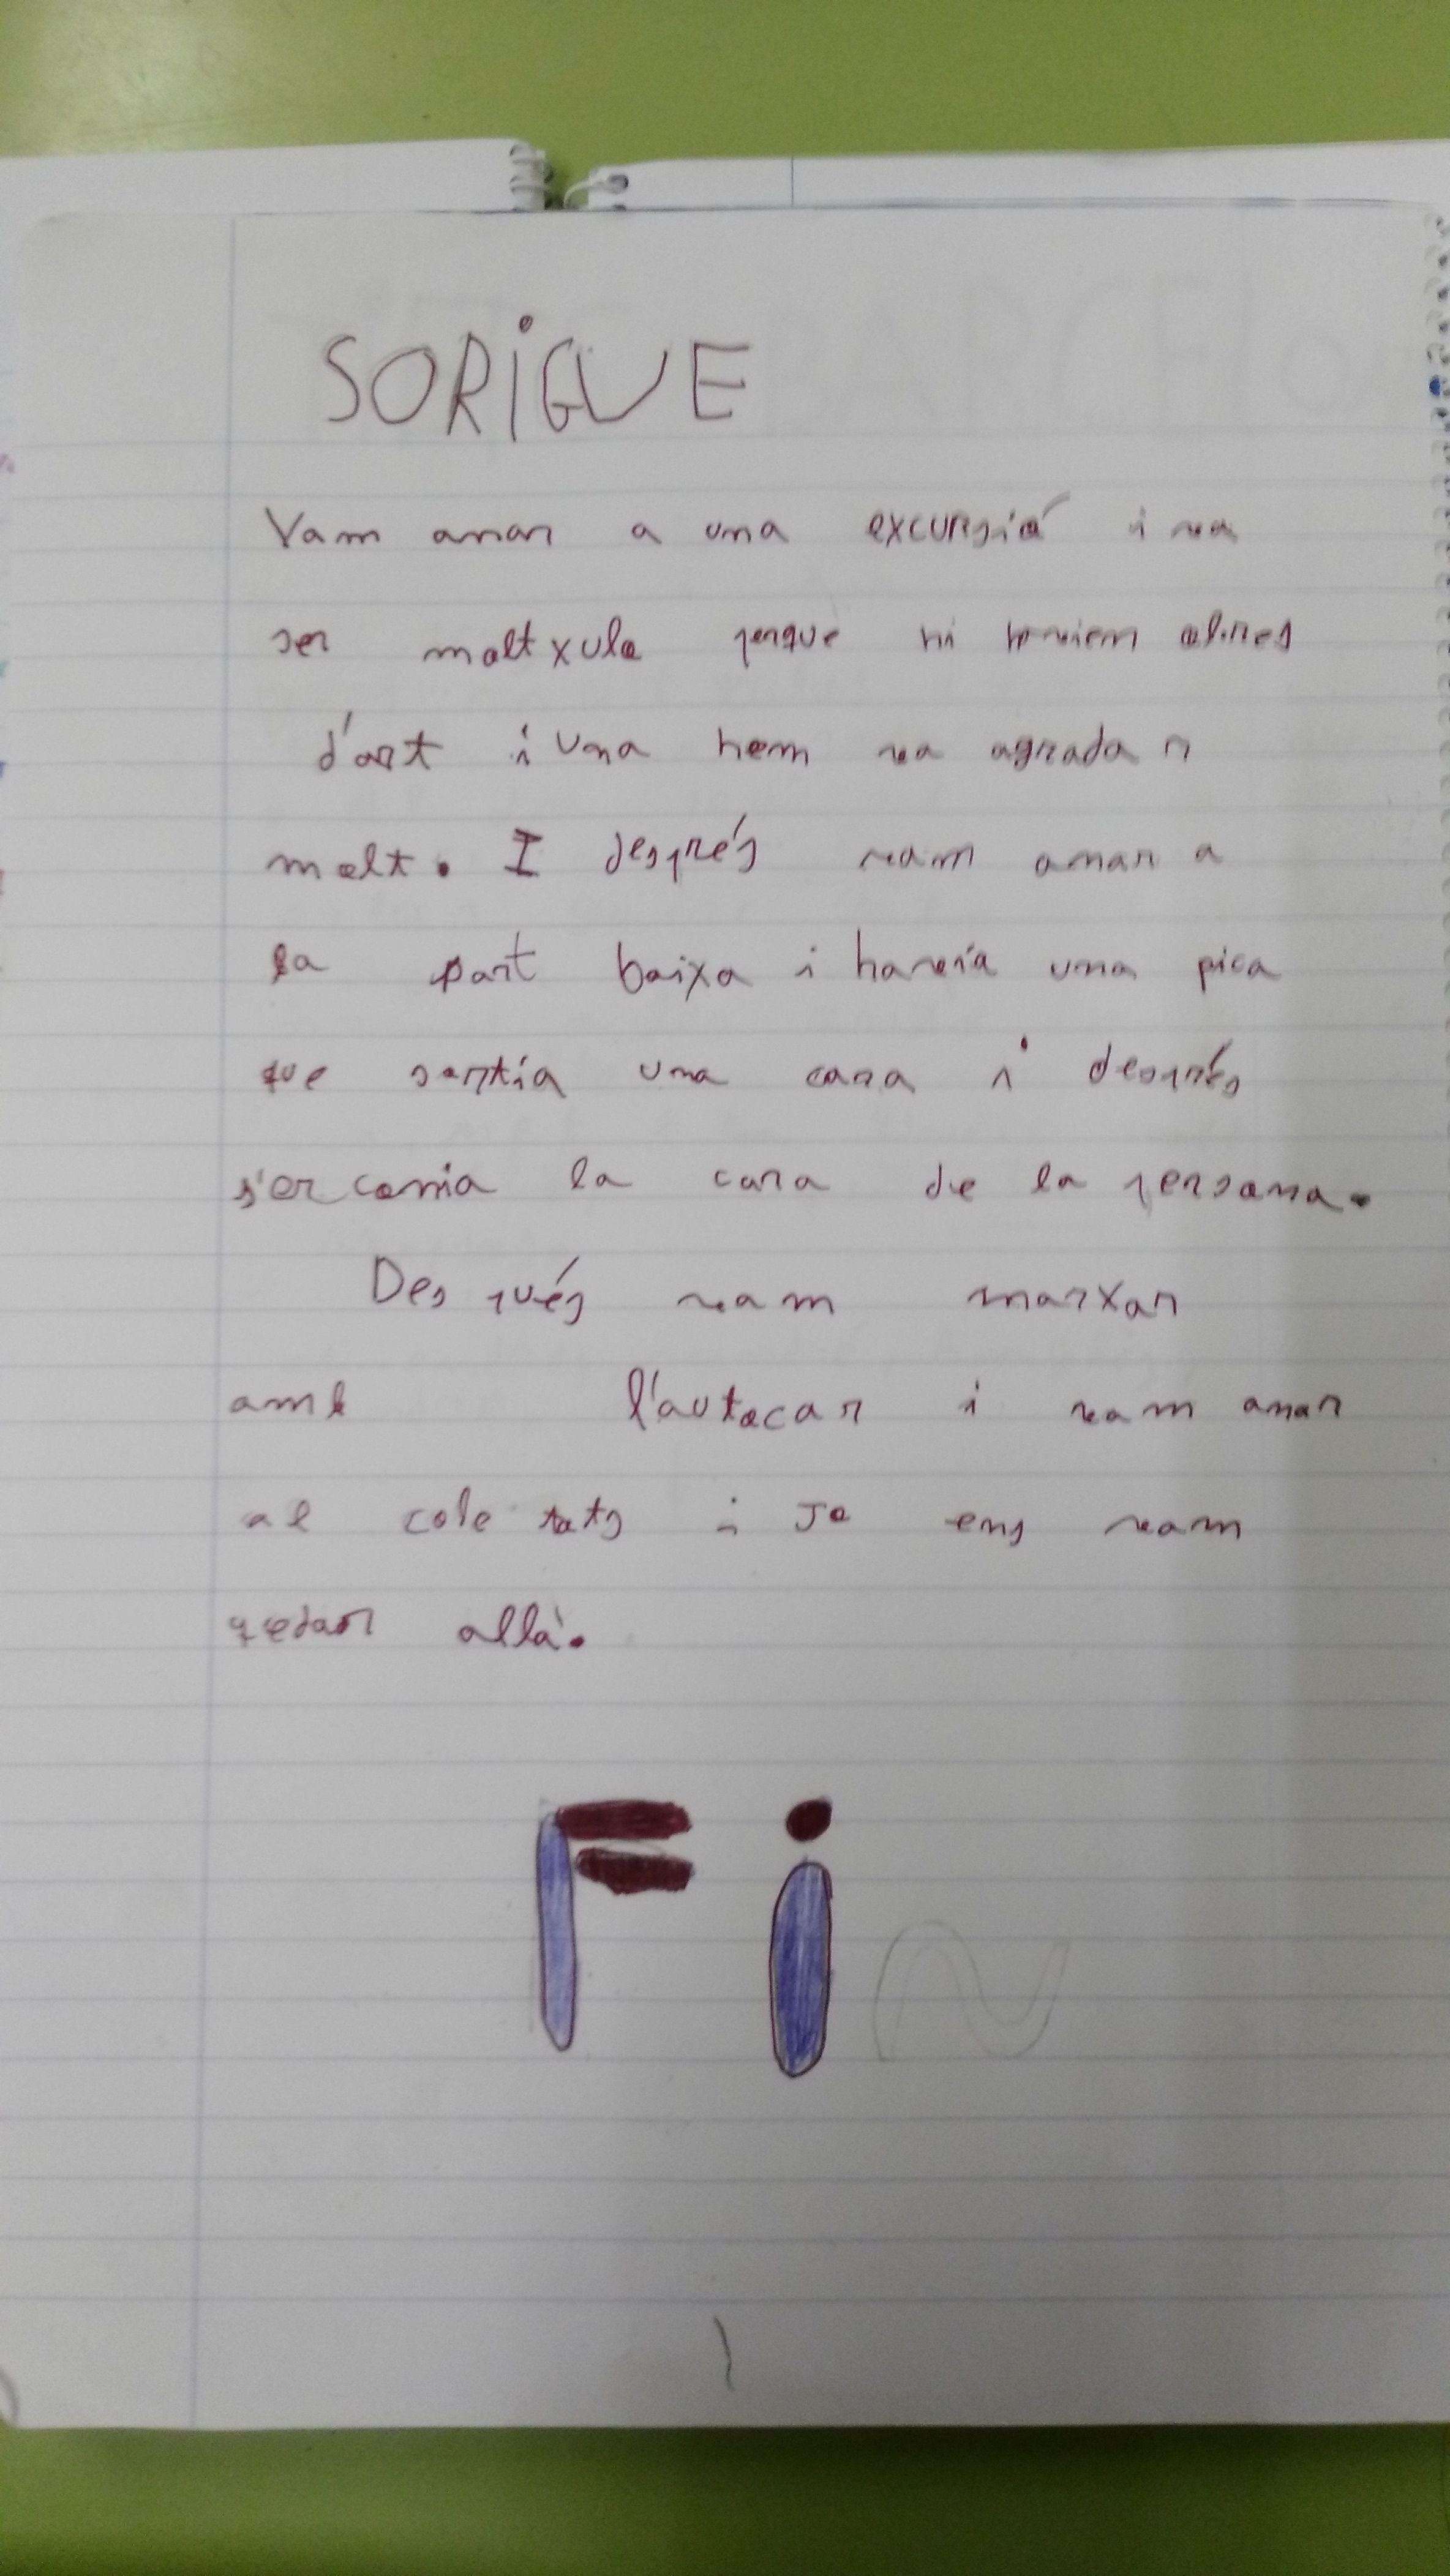 SORIGUE
Vam anar a una excursió i va
ser molt xulo perque hi havien obres
d'art i una hem va agradar
molt. I després vam anar a
la part baixa i havia una pica
que sortia una cara i després
s'enconia la cara de la persona.
Des qués vam marxar
amb l'autocar i vam anar
al cole tots i Jo ens vam
qedar allà.
Fi